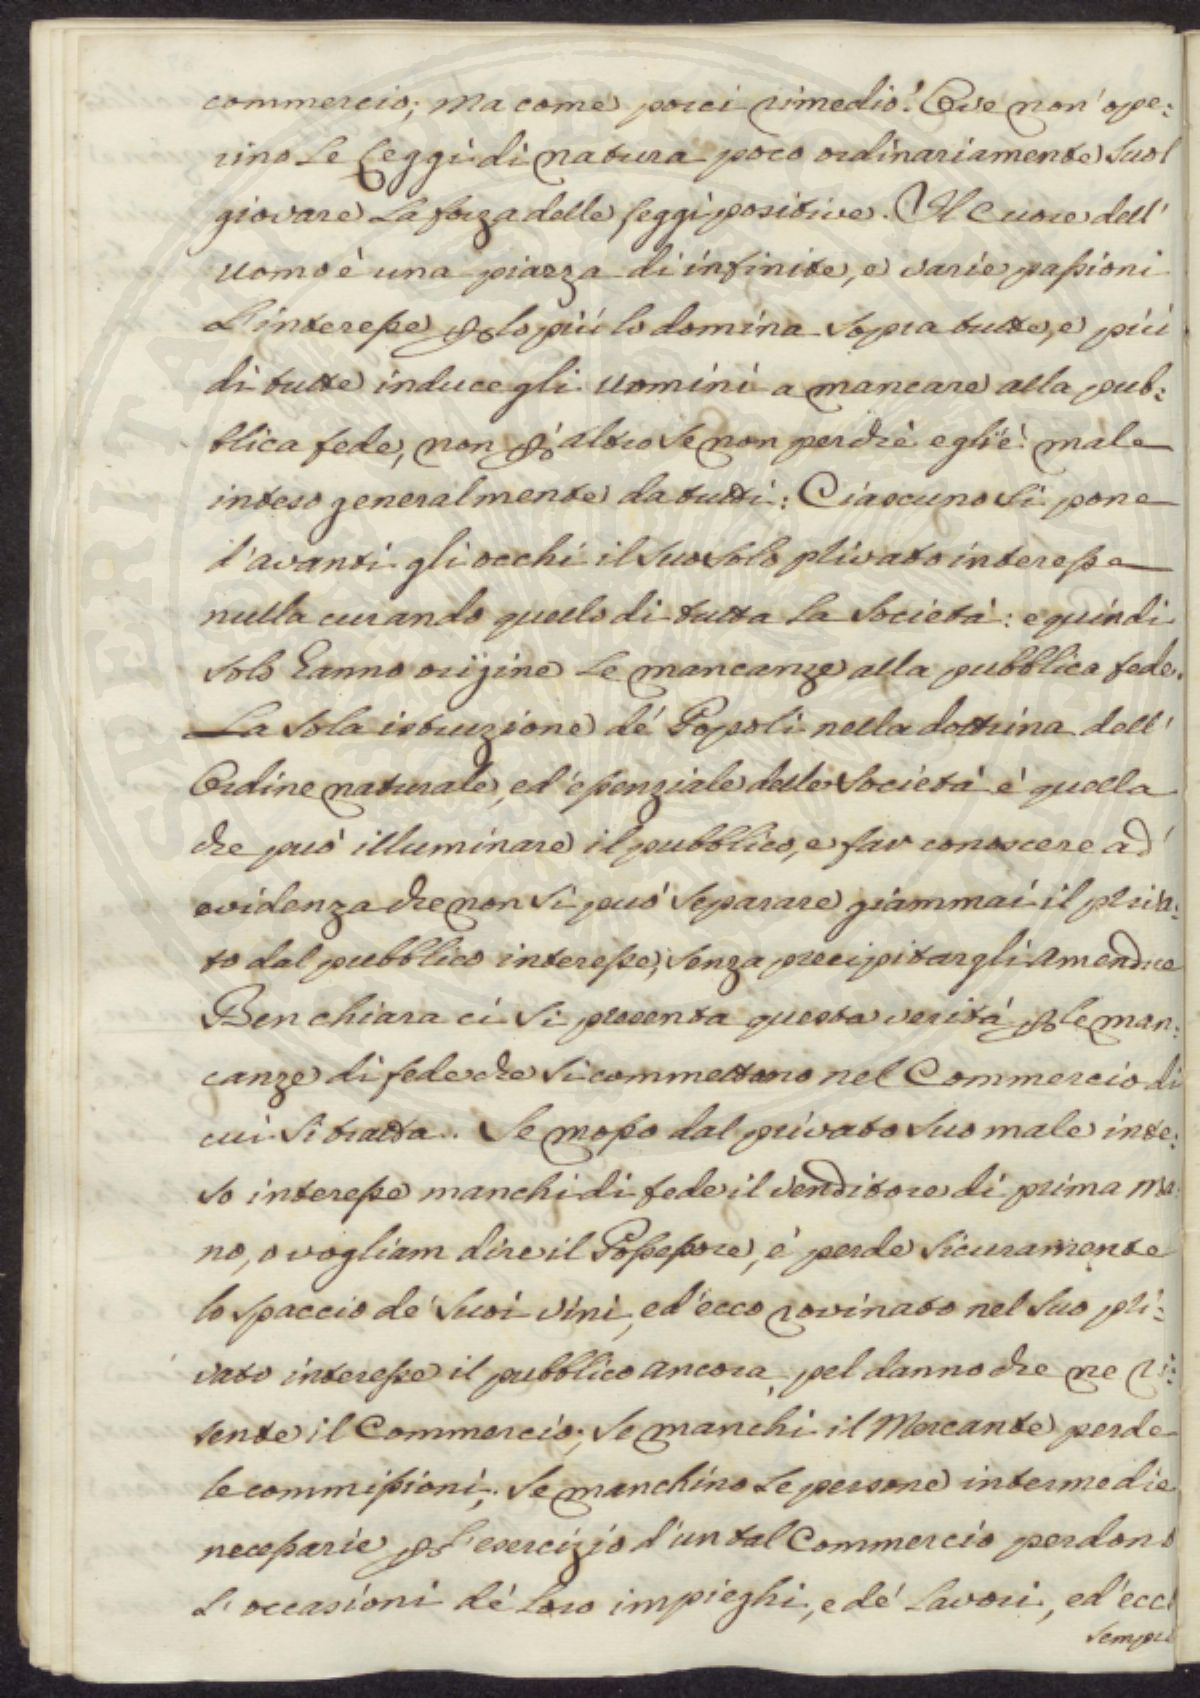 commercio; Ma come porci rimedio? Ove non ope:
rino le Leggi di natura poco ordinariamente suol
giovare la forza delle leggi positive. Il Cuore dell'
Uomo è una piazza di infinite, e varie passioni
L'interesse p lo più lo domina sopra tutte, e più
di tutte induce gli Uomini a mancare alla pub:
blica fede, non p altro se non perchè egli è male
inteso generalmente da tutti: Ciascuno si pone
d'avanti gli occhi il suo solo privato interesse
nulla curando quello di tutta la Società: e quindi
solo hanno origine le mancanze alla pubblica fede.
La sola istruzione dé Popoli nella dottrina dell'
Ordine naturale, ed essenziale delle Società è quella
che può illuminare il pubblico, e far conoscere ad
evidenza che non si può separare giammai il priva:
to dal pubblico interesse, senza precipitargli amendue
Ben chiara ci si presenta questa verità p le man:
canze di fede che si commettono nel Commercio di
cui si tratta. Se mosso dal privato suo male inte:
so interesse manchi di fede il venditore di prima ma
no, o vogliam dire il Possessore, é perde sicuramente
lo spaccio de' suoi vini, ed ecco rovinato nel suo pri:
vato interesse il pubblico ancora pel danno che ne ri:
sente il Commercio; se manchi il Mercante perde
le commissioni; se manchino le persone intermedie
necessarie p l'esercizio d'un tal Commercio perdono
l'occasioni dé loro impieghi, e dé lavori, ed ecco
sempre